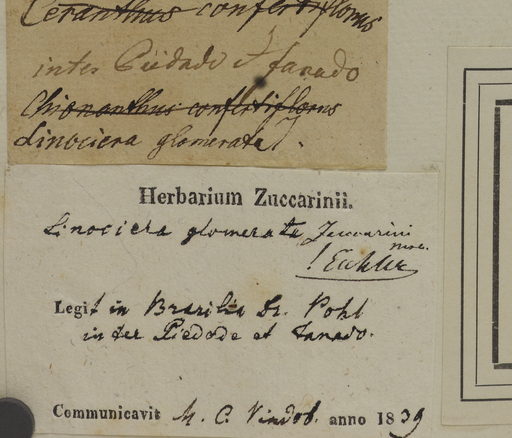 Ceranthus confertiflorus
inter Piedade et fanado
Chionanthus confertiflorus
Linociera glomerata
Herbarium Zuccarinii.
Linociera glomerata Zuccarini
! Eichler
Legit in Brasilia Dr. Pohl
inter Piedade et Fanado.
Communicavit M. C. Vindob. anno 1839